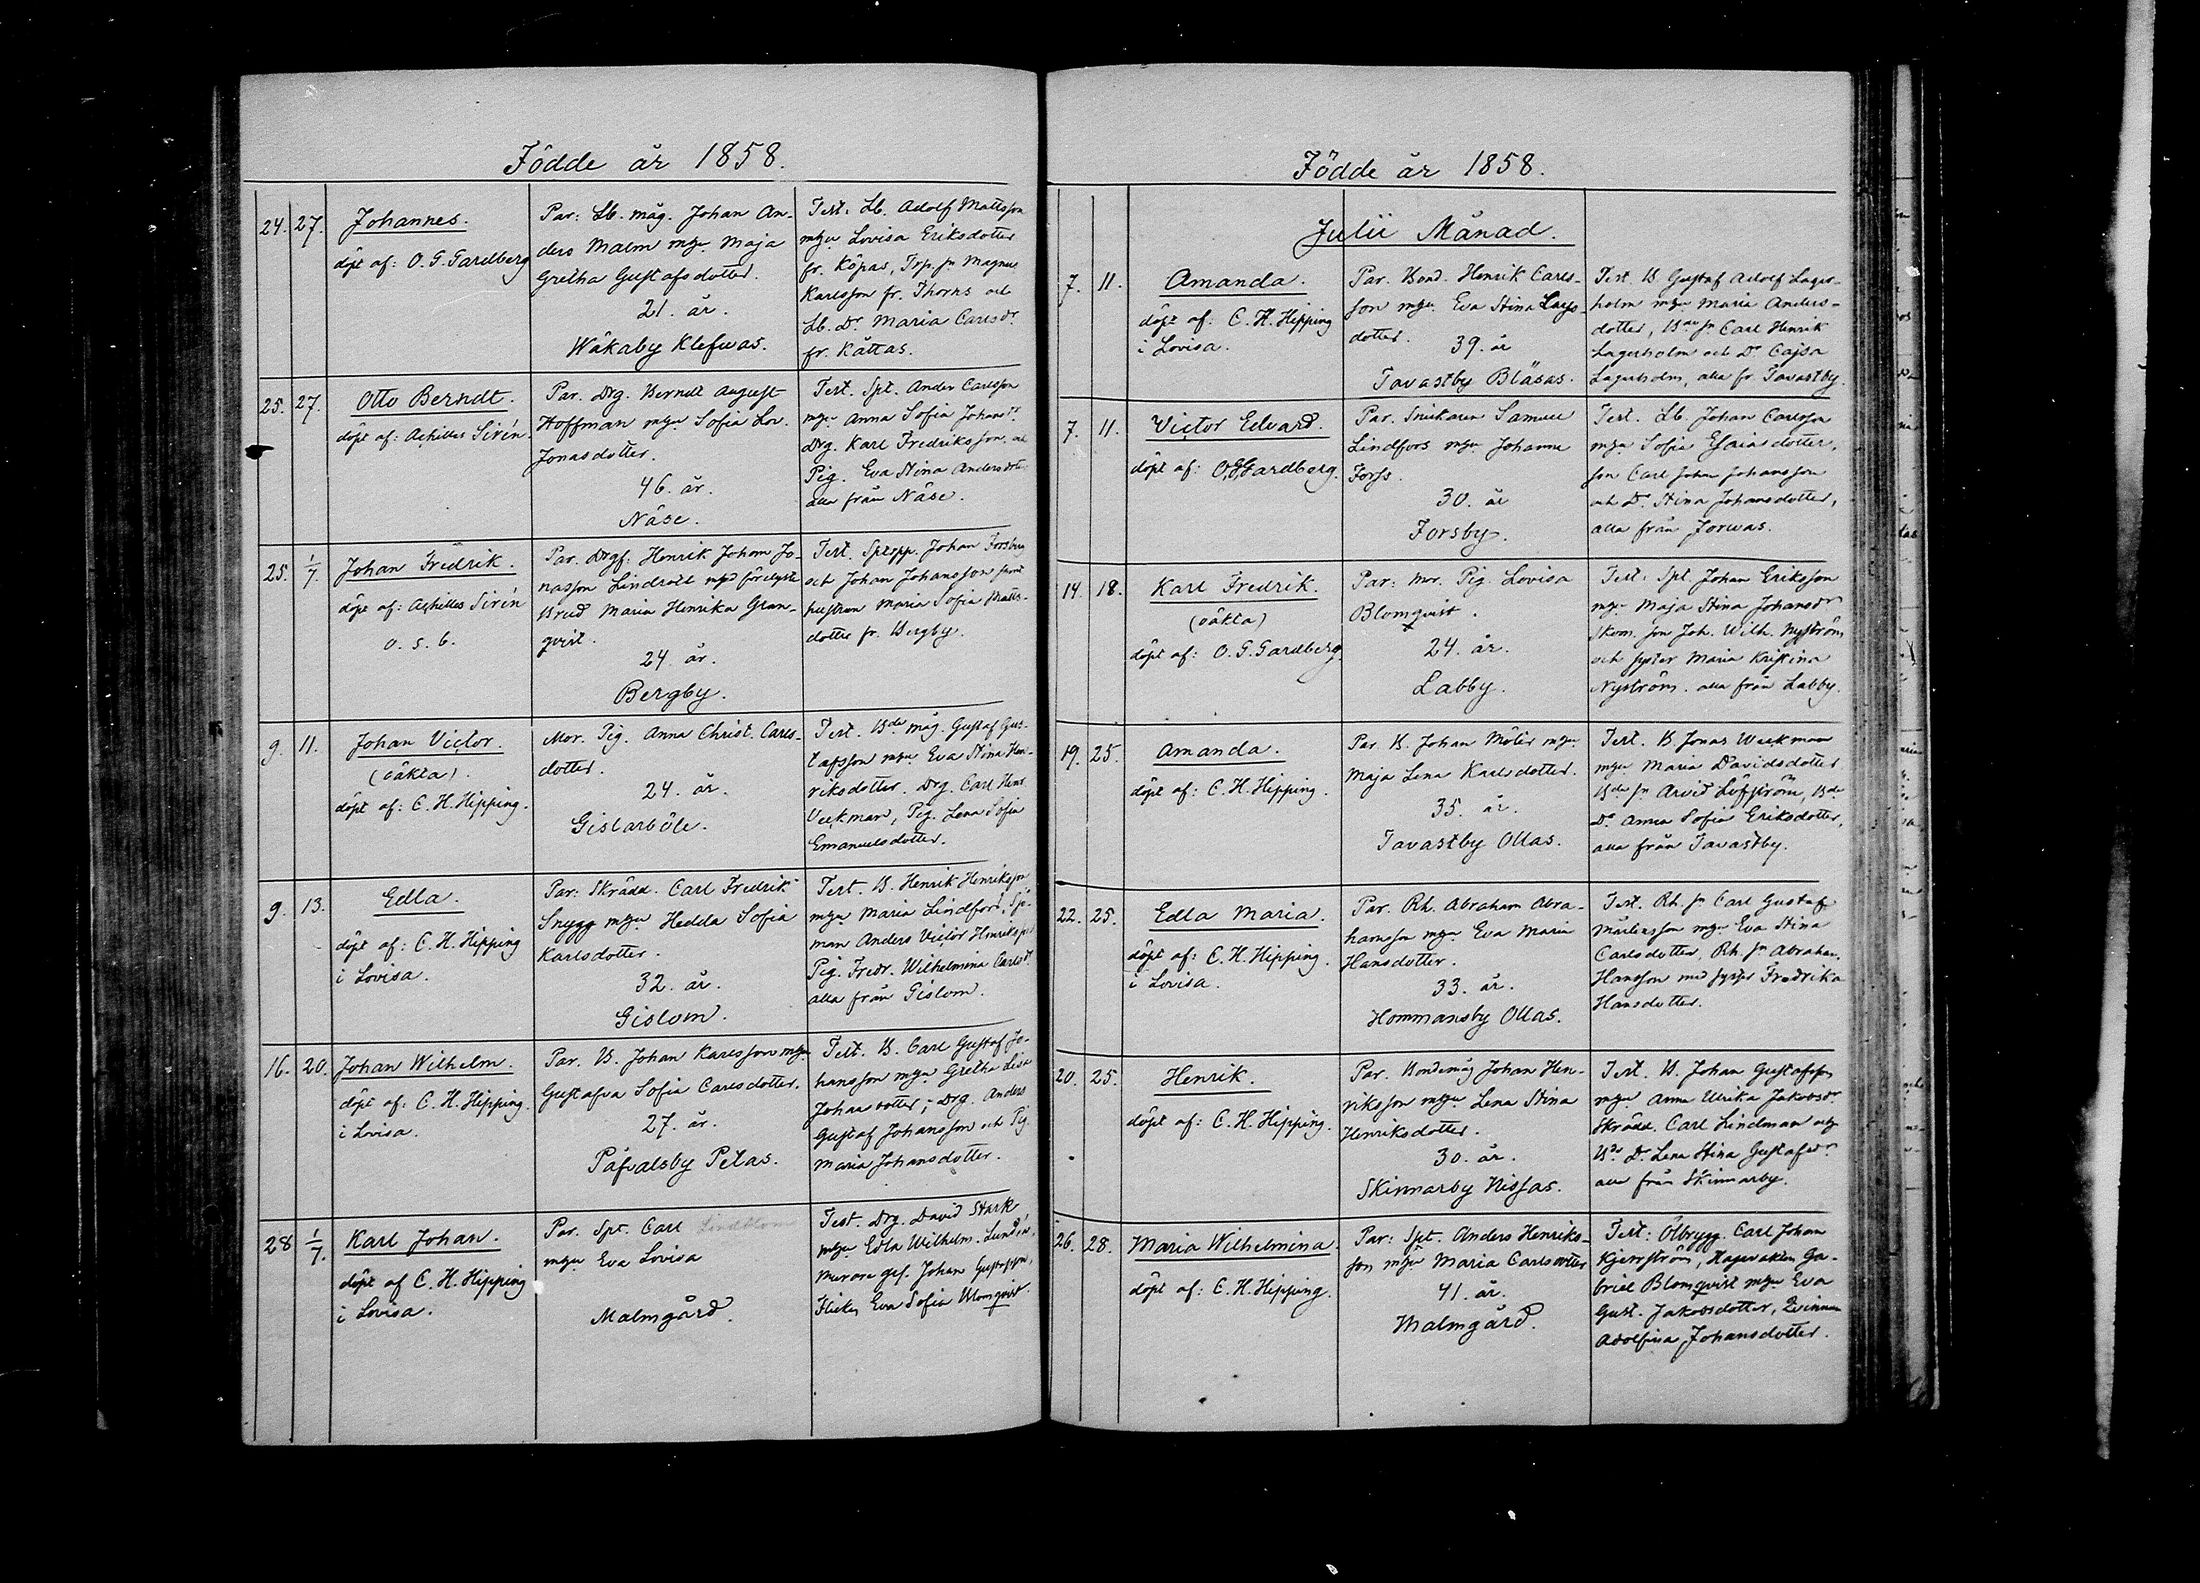 Födde år 1858.
24. 27. Johannes.
döpt af: O. G. Gardberg
Par: Lb. måg. Johan An-
ders Malm m hu Maja
Gretha Gustafsdotter.
21. år.
Wåkaby Klefwas.
Test: Lb. Adolf Mattsson
m hu Lovisa Eriksdotter
fr. Köpas, Magnus
Karlsson fr. Thorns och
Lb. Dr Maria Carlsdr
fr. Kåttas.
25. 27. Otto Berndt.
döpt af: Achilles Sirén.
Par. Drg. Berndt August
Hoffman m hu Sofia Lov.
Jonasdotter.
46. år.
Näse.
Test. Spt. Anders Carlsson
m hu Anna Sofia Johansdr
Drg. Karl Fredriksson, och
Pig. Eva Stina Andersdotter
alla från Näse.
25. 1/7. Johan Fredrik.
döpt af: Achilles Sirén
o. s. b.
Par. Drgf. Henrik Johan Jo-
nasson Lindroth med
Brud Maria Henrika Gran-
qvist.
24. år.
Bergby.
Test. Johan Forsberg
och Johan Johansson samt
hustrun Maria Sofia Matts-
dotter fr. Bergby.
9. 11. Johan Victor.
(oäkta).
döpt af: C. H. Hipping.
Mor. Pig. Anna Christ. Carls-
dotter.
24. år.
Gislarböle.
Test. Bde måg. Gustaf Gus-
tafsson m hu Eva Stina Hen-
riksdotter. Drg. Carl Henr
Veckman, Pig. Lena Sofia
Emanuelsdotter.
9. 13. Edla.
döpt af: C. H. Hipping
i Lovisa.
Par: Skrädd. Carl Fredrik
Snygg m hu Hedda Sofia
Karlsdotter.
32. år.
Gislom.
Test. B. Henrik Henriksson
m hu Maria Lindfors, Sjö-
man Anders Victor Henriksson
Pig. Fredr. Wilhelmina Carlsdr
alla från Gislom.
16. 20. Johan Wilhelm.
döpt af: C. H. Hipping.
i Lovisa.
Par. B. Johan Karlsson m hu
Gustafva Sofia Carlsdotter.
27. år.
Påfvalsby Petas.
Test. B. Carl Gustaf Jo-
hansson m hu Gretha Lisa
Johansdotter; Drg. Anders
Gustaf Johansson och Pig
Maria Johansdotter.
28 1/7. Karl Johan.
döpt af C. H. Hipping
i Lovisa.
Par. Spt. Carl Lindblom
m hu Eva Lovisa
Malmgård.
Test. Drg. David Stark
m hu Edla Wilhelm. Lundén,
Murare ges. Johan Gustafsson,
Flickan Eva Sofia Blomqvist.
Födde år 1858.
Julii Månad.
7. 11. Amanda.
döpt af: C. H. Hipping
i Lovisa.
Par. Bond. Henrik Carls-
son m hu Eva Stina Lars-
dotter.
39. år
Tavastby Bläsas.
Test. B Gustaf Adolf Lager-
holm m hu Maria Anders-
dotter, Bde sn Carl Henrik
Lagerholm och Dr Cajsa
Lagerholm, alla fr. Tavastby.
7. 11. Victor Edvard.
döpt af: O. G. Gardberg.
Par. Snickaren Samuel
Lindfors m hu Johanna
Forss.
30. år
Forsby.
Test. Lb Johan Carlsson
m hu Sofia Esaiasdotter,
son Carl Johan Johansson
och Dr. Stina Johansdotter,
alla från Jorwas.
14. 18. Karl Fredrik.
(oäkta)
döpt af: O. G. Gardberg.
Par: Mor. Pig. Lovisa
Blomqvist.
24. år.
Labby.
Test: Spt. Johan Eriksson
m hu Maja Stina Johansdr
Skom. son Joh. Wilh. Nyström
och syster Maria Kristina
Nyström. alla från Labby.
19. 25. Amanda.
döpt af: C. H. Hipping.
Par. B. Johan Molér m hu
Maja Lena Karlsdotter.
35. år.
Tavastby Ollas.
Test. B Jonas Weckman
m hu Maria Davidsdotter
Bde sn Arvid Löfström, Bde
Dr Anna Sofia Eriksdotter,
alla från Tavastby.
22. 25. Edla Maria.
döpt af: C. H. Hipping.
i Lovisa.
Par. Rh. Abraham Abra-
hamsson m hu Eva Maria
Hansdotter.
33. år.
Hommansby Ollas.
Test. Rh. sn Carl Gustaf
Mårtensson m hu Eva Stina
Carlsdotter, Rh. sn Abraham
Hansson med syster Fredrika
Hansdotter.
20. 25. Henrik.
döpt af: C. H. Hipping.
Par. Bondemåg Johan Hen-
riksson m hu Lena Stina
Henriksdotter.
30. år.
Skinnarby Nissas.
Test. B. Johan Gustafsson
m hu Anna Ulrika Jakobsdr
Skrädd. Carl Lindman och
Bde Dr Lena Stina Gustafsdr
alla från Skinnarby.
26. 28. Maria Wilhelmina.
döpt af: C. H. Hipping.
Par: Spt. Anders Henriks-
son m hu Maria Carlsdotter
41. år.
Malmgård.
Test: Ölbrygg. Carl Johan
Kjerrström, Hagevakten Ga-
briel Blomqvist m hu Eva
Gust. Jakobsdotter, Qvinnan
Adolfina Johansdotter.